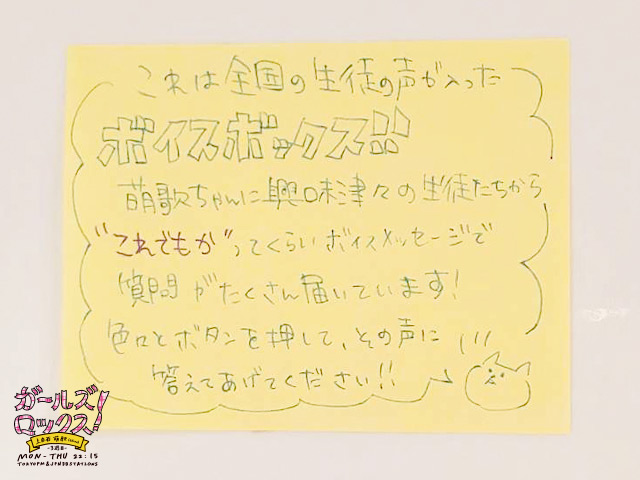 これは全国の生徒の声が入った
ボイスボックス!!
萌歌ちゃんに興味津々の生徒たちから
"これでもか"ってくらいボイスメッセージで
質問がたくさん届いています!
色々とボタンを押して、その声に
答えてあげてください!!
ガールズ
ロックス!
上白石 萌歌
MON - THU 22:15
TOKYOFM & JFN38STATIONS